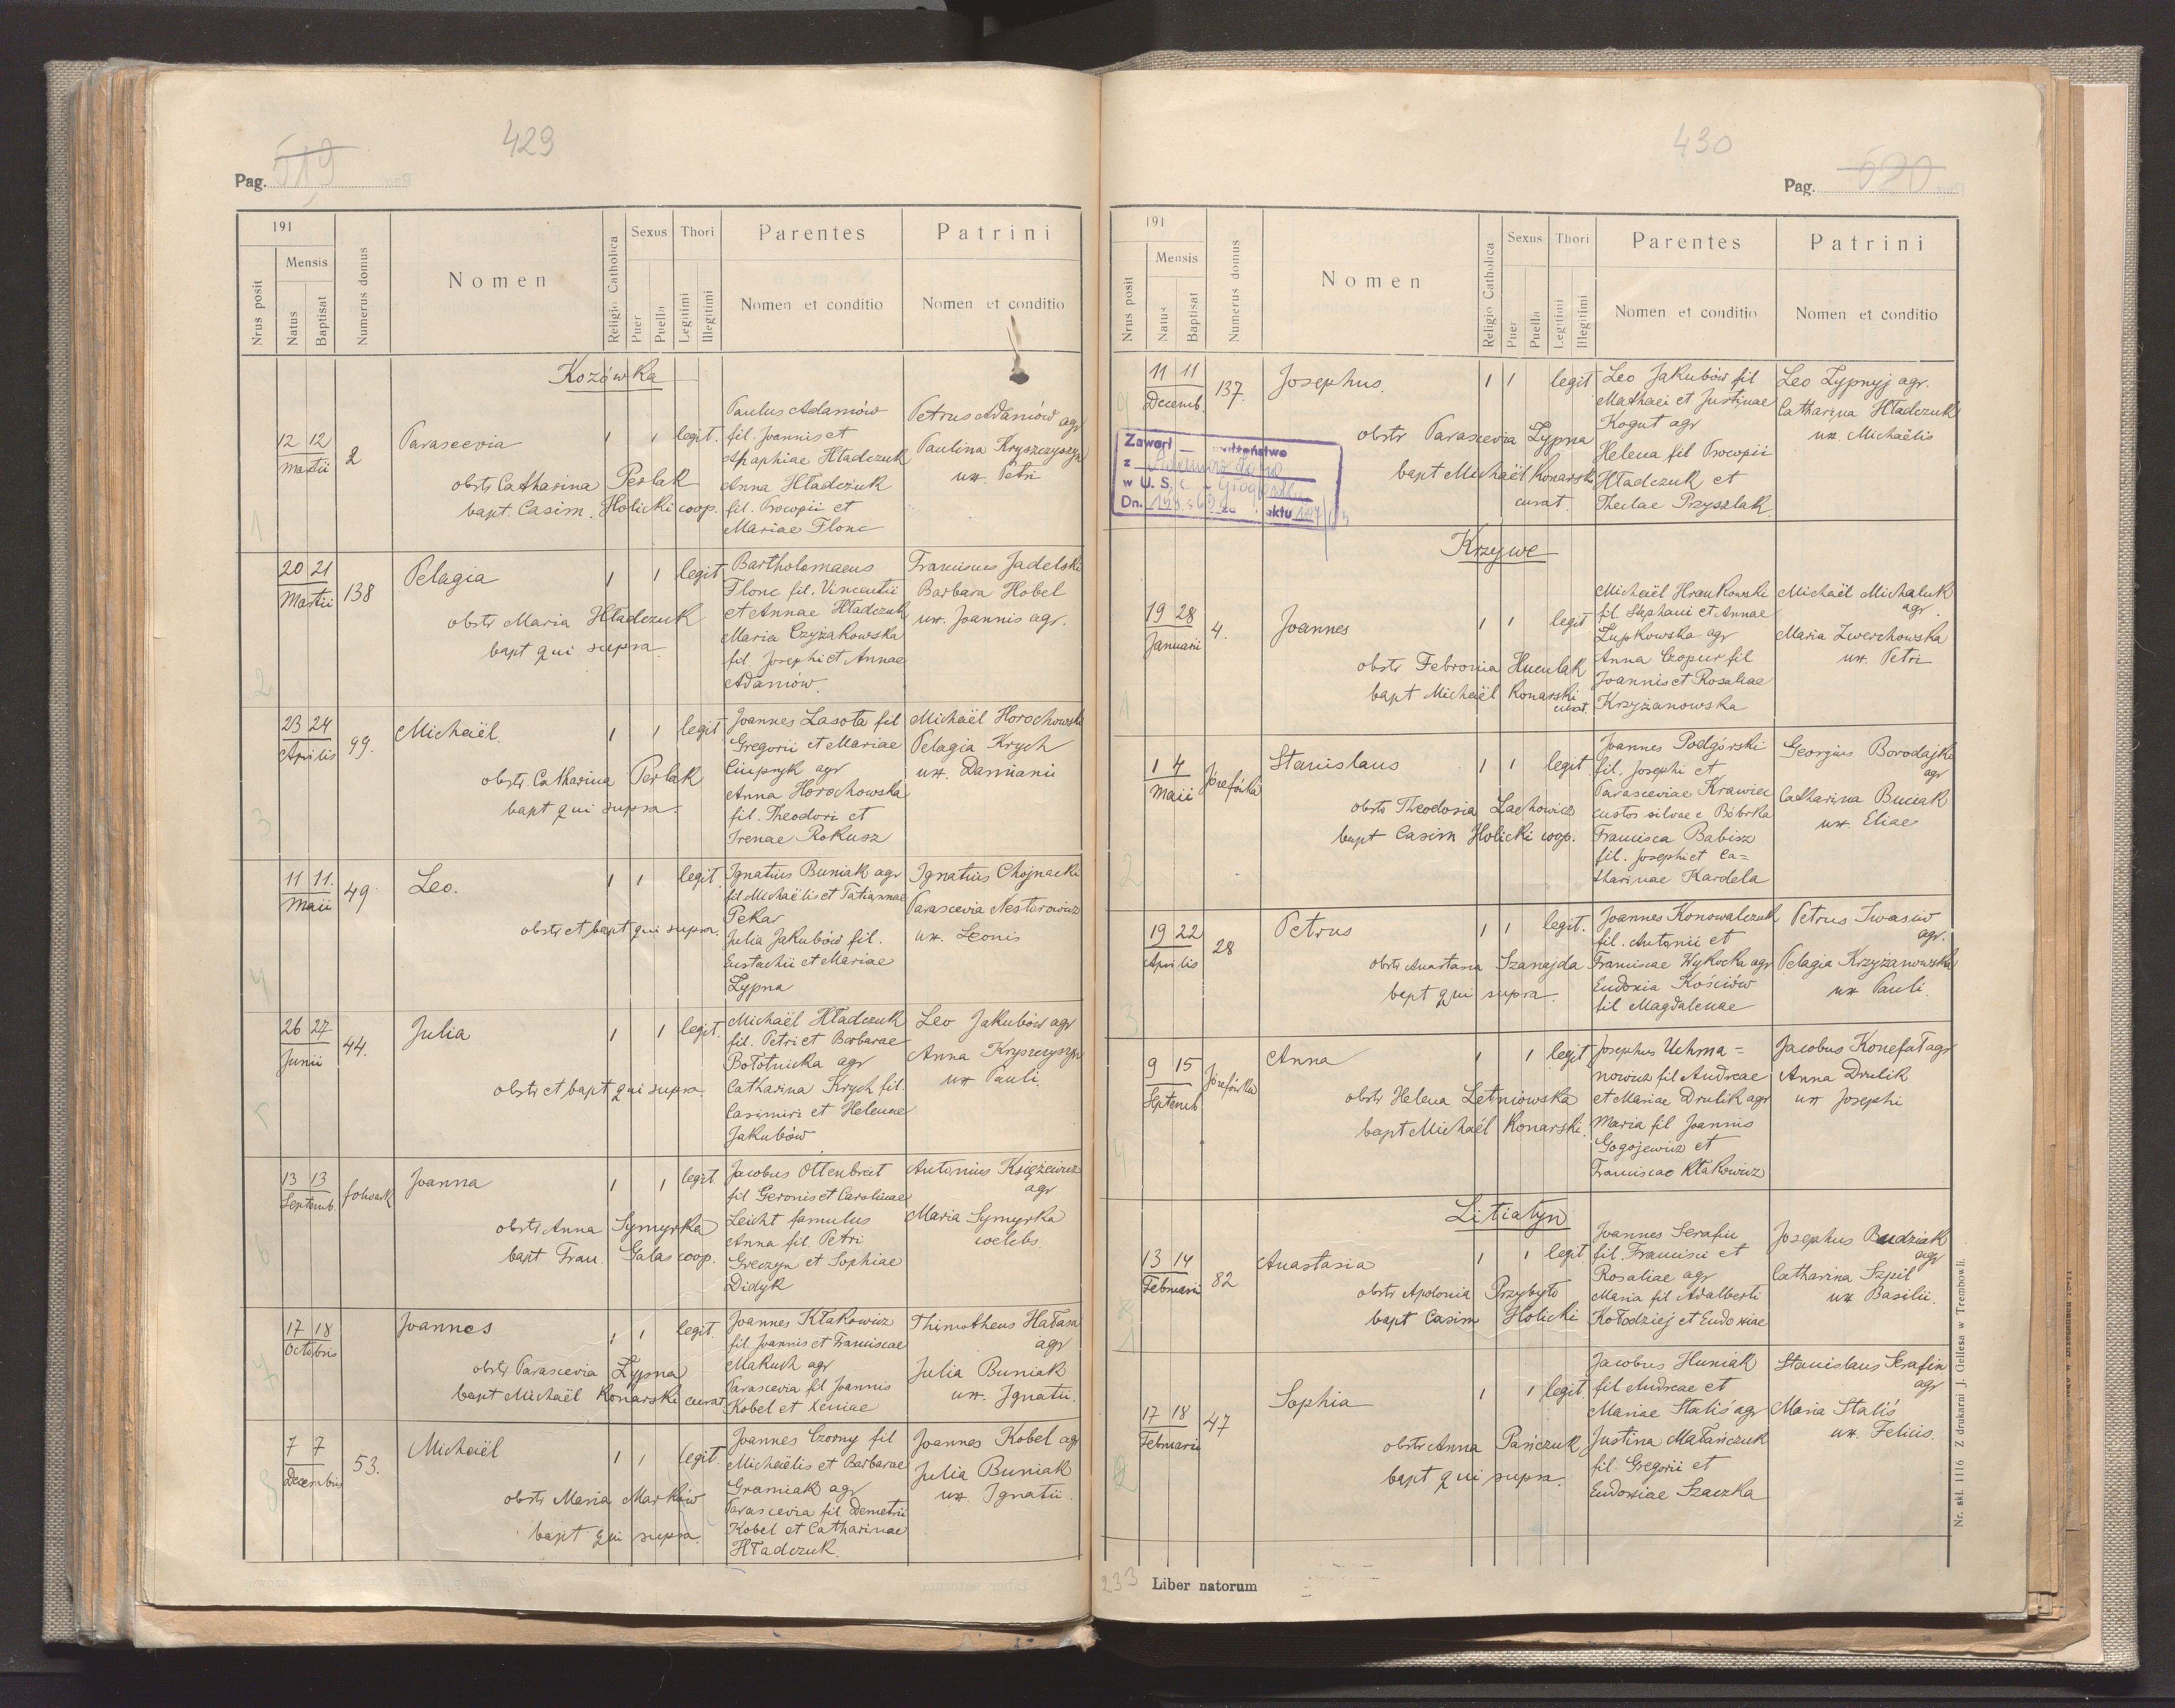 429
Pag. 519
191
Nrus posit
Mensis
Natus
Baptisat
Numerus domus
Nomen
Religio Catholica
Sexus
Puer
Puella
Thori
Legitimi
Illegitimi
Parentes
Nomen et conditio
Patrini
Nomen et conditio
Kozówka
1
12 12
Martii
2
Parascevia
1 1 legit.
obstr Catharina Perlak
bapt. Casim. Holicki coop.
Paulus Adamów
fil. Joannis et
Apaphiae Hładczuk
Anna Hładczuk
fil. Procopii et
Mariae Flonc
Petrus Adamów agr
Paulina Kryszczyszyn
ux. Petri
2
20 21
Martii
138
Pelagia
1 1 legit
obstr Maria Hładczuk
bapt qui supra
Bartholomaeus
Flonc fil. Vincentii
et Annae Hładczuk
Maria Czyżakowska
fil. Josephi et Annae
Adamów.
Franciscus Jadelski
Barbara Hobel
ux. Joannis agr.
3
23 24
Aprilis
99.
Michaël.
1 1 legit
obstr. Catharina Perlak
bapt qui supra.
Joannes Lasota fil
Gregorii et Mariae
Ciupryk agr
Anna Horochowska
fil. Theodori et
Irenae Rokusz
Michaël Horochowski
Pelagia Krych
ux. Damiani
4
11 11.
Maii
49
Leo.
1 1 legit.
obstr et bapt qui supra.
Ignatius Buniak agr
fil Michaëlis et Tatiannae
Pekar
Julia Jakubów fil.
Eustachii et Mariae
Łypna
Ignatius Chojnacki
Parascevia Nestorowicz
ux. Leonis
5
26 27
Junii
44.
Julia
1 1 legit.
obstr et bapt qui supra.
Michaël Hładczuk
fil. Petri et Barbarae
Bołotnicka agr
Catharina Krych fil.
Casimiri et Helenae
Jakubów
Leo Jakubów agr
Anna Kryszczyszyn
ux Pauli.
6
13 13
Septemb.
folwark
Joanna
1 1 legit.
obstr Anna Symyrka
bapt Fran. Galas coop.
Jacobus Ottenbreit
fil Geronis et Carolinae
Leicht famulus
Anna fil. Petri
Greczyn et Sophiae
Didyk
Antonius Księżewicz
agr
Maria Symyrka
coelebs.
7
17 18
Octobris
Joannes
1 1 legit.
obstr Parascevia Łypna
bapt Michaël Konarski curat
Joannes Kłakowicz
fil Joannis et Franciscae
Makuch agr
Parascevia fil Joannis
Kobel et Xeniae
Thimotheus Hałasa
agr
Julia Buniak
ux. Ignatii.
8
7 7
Decembris
53.
Michaël
1 1 legit.
obstr Maria Marków
bapt qui supra.
Joannes Czorny fil
Michaëlis et Barbarae
Graniak agr
Parascevia fil Demetrii
Kobel et Catharinae
Hładczuk.
Joannes Kobel agr
Julia Buniak
ux. Ignatii.
430
Pag. 520
191
Nrus posit
Mensis
Natus
Baptisat
Numerus domus
Nomen
Religio Catholica
Sexus
Puer
Puella
Thori
Legitimi
Illegitimi
Parentes
Nomen et conditio
Patrini
Nomen et conditio
9
11 11
Decemb.
137.
Josephus.
1 1 legit
obstr Parascevia Łypna
bapt Michaël Konarski
curat.
Leo Jakubów fil
Mathaei et Justinae
Kogut agr
Helena fil Procopii
Hładczuk et
Theclae Przyszlak.
Leo Łypnyj agr.
Catharina Hładczuk
ux. Michaëlis
Zawarł małżeństwo
z
w U. S.
Dn. aktu
Krzywe
1
19 28
Januarii
4.
Joannes
1 1 legit
obstr Febronia Huculak
bapt Michaël Konarski
curat.
Michaël Hraukowski
fil. Stephani et Annae
Łupkowska agr
Anna Czopur fil
Joannis et Rosaliae
Krzyżanowska
Michaël Michaluk
agr.
Maria Zwerchowska
ux. Petri
2
1 4
Maii
Józefówka
Stanislaus
1 1 legit
obstr Theodosia Lachowicz
bapt Casim Holicki coop.
Joannes Podgórski
fil. Josephi et
Parasceviae Krawiec
custos silvae e Bóbrka
Francisca Babisz
fil. Josephi et Ca=
tharinae Kardela
Georgius Borodajki
agr
Catharina Buciak
ux. Eliae
3
19 22
Aprilis
28
Petrus
1 1 legit.
obstr Anastasia Szanajda
bapt qui supra.
Joannes Konowalczuk
fil. Antonii et
Franciscae Wykocka agr
Eudoxia Kościów
fil Magdalenae
Petrus Iwasiw
agr.
Pelagia Krzyżanowska
ux Pauli.
4
9 15
Septemb
Józefówka
Anna
1 1 legit
obstr Helena Letniowska
bapt Michaël Konarski.
Josephus Uchma=
nowicz fil Andreae
et Mariae Drulik agr
Maria fil Joannis
Gogojewicz et
Franciscae Kłakowicz
Jacobus Konefał agr
Anna Drulik
ux Josephi
Litiatyn
1
13 14
Februarii
82
Anastasia
1 1 legit.
obstr Apolonia Przybyło
bapt Casim Holicki
Joannes Serafin
fil. Francisci et
Rosaliae agr
Maria fil Adalberti
Kołodziej et Eudoxiae
Josephus Budziak
agr
Catharina Szpil
ux Basilii.
2
17 18
Februarii
47
Sophia
1 1 legit.
obstr Anna Pańczuk
bapt qui supra.
Jacobus Huniak
fil Andreae et
Mariae Staliś agr
Justina Małańczuk
fil. Gregorii et
Eudoxiae Szaczka
Stanislaus Serafin
agr
Maria Staliś
ux. Felicis.
233
Liber natorum
Nr. skł. 1116 Z drukarni J. Gellesa w Trembowli.